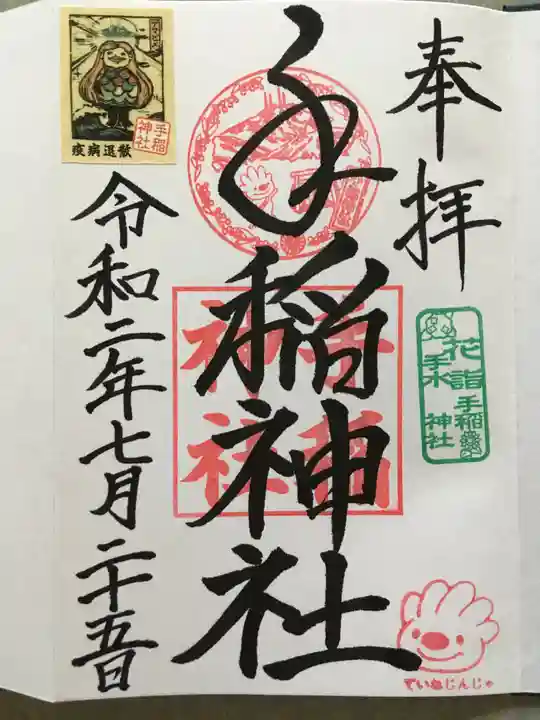 奉拝
花詣
手水
手稲
神社
手稲神社
手稲
神社
令和二年七月二十五日
疫病退散
手稲
神社
ていねじんじゃ